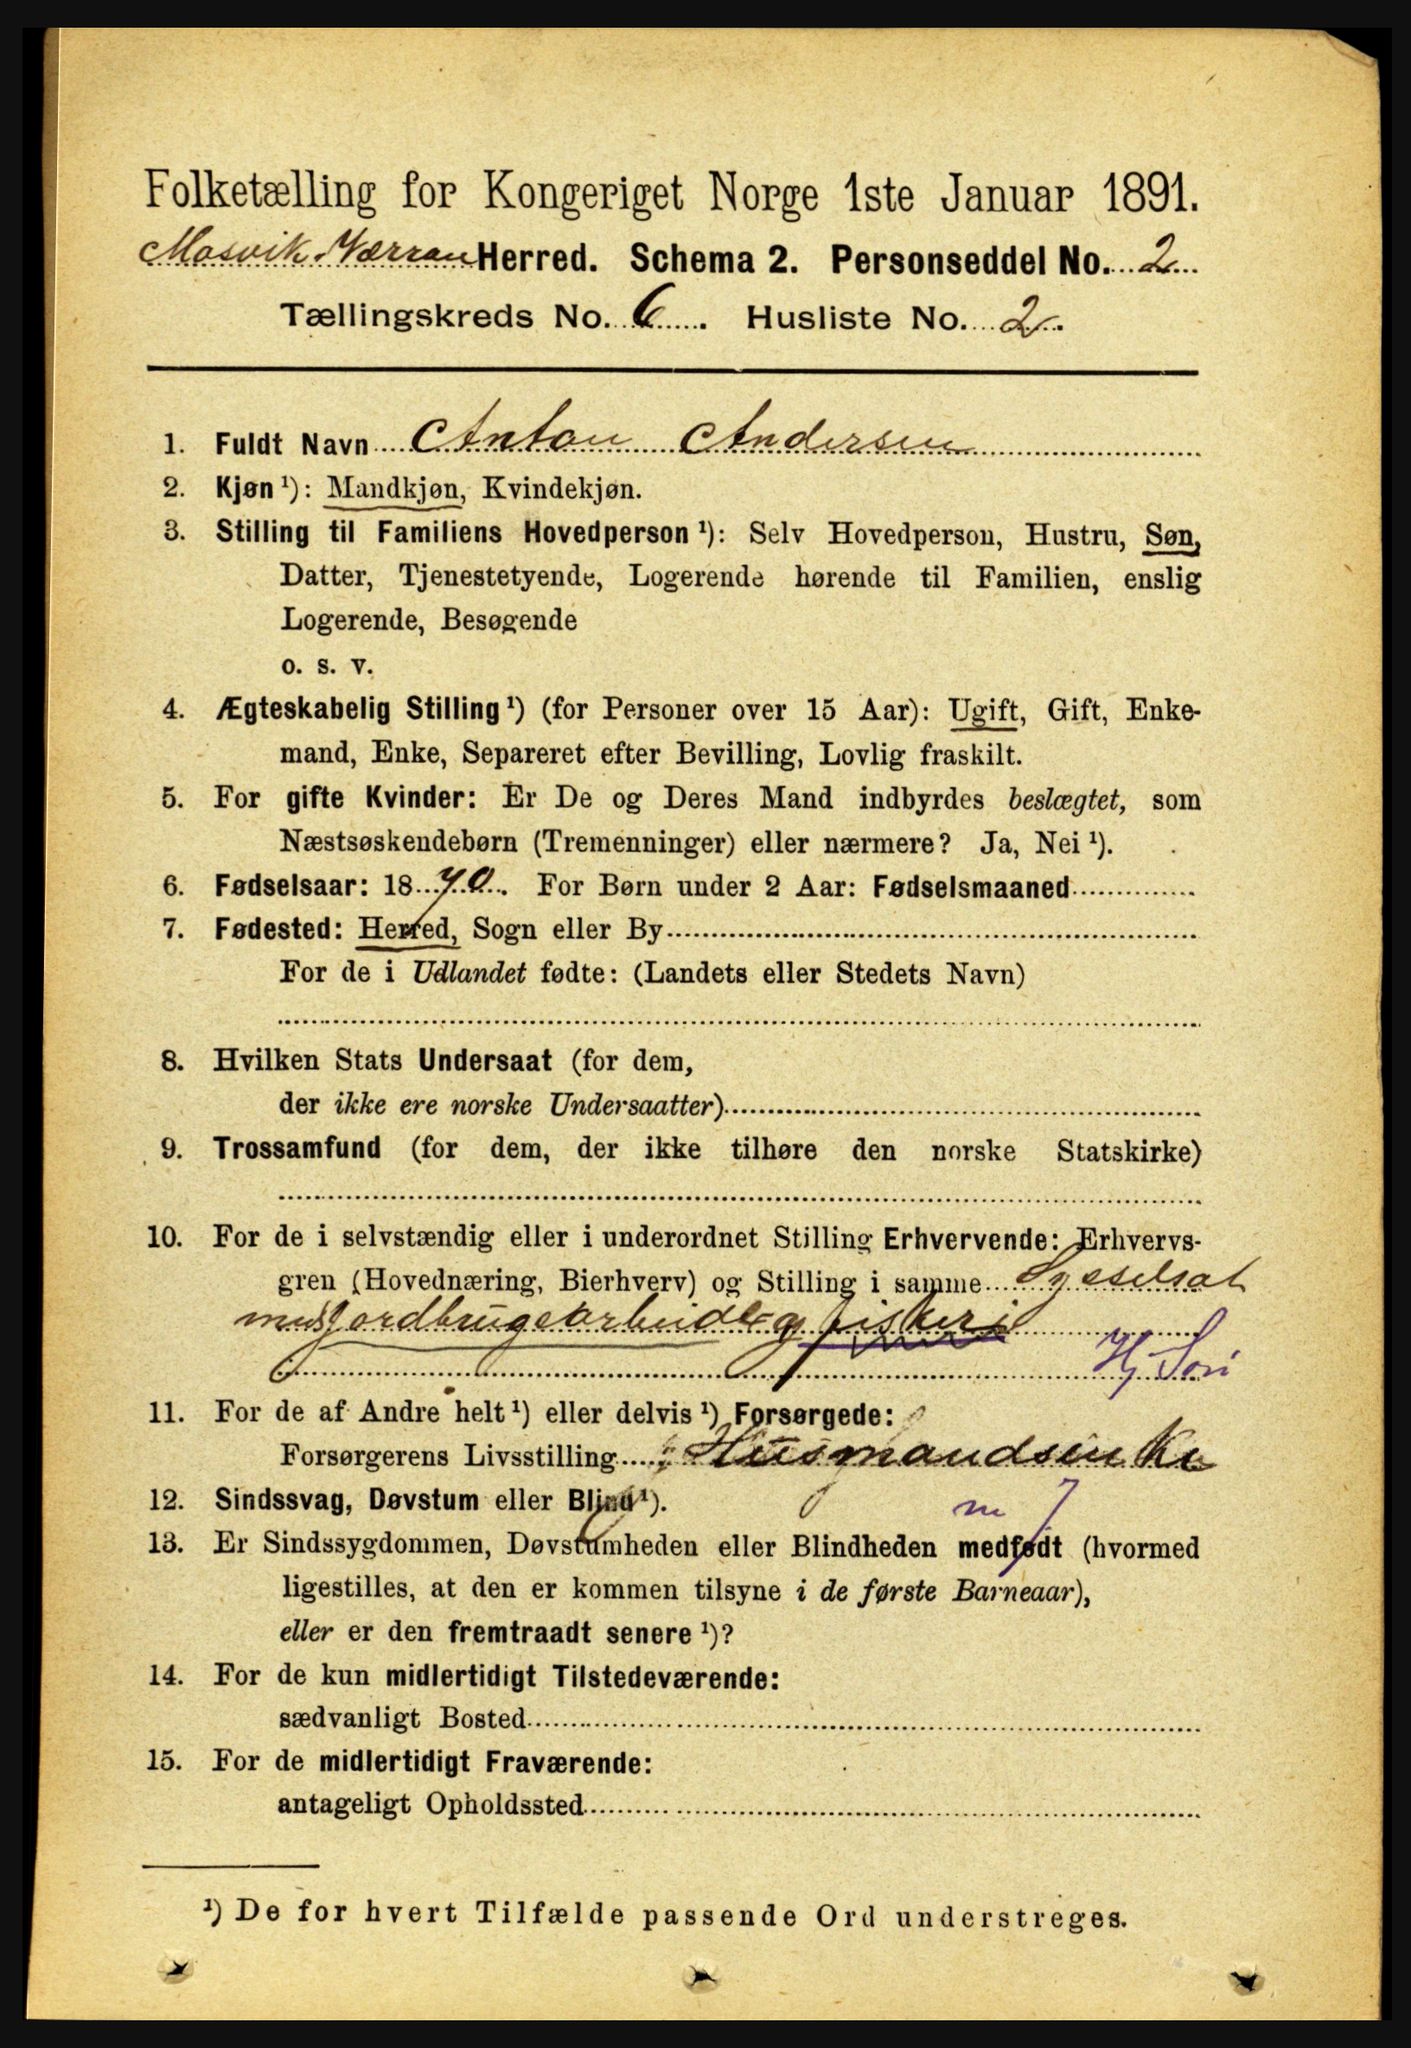 Folketælling for Kongeriget Norge 1ste Januar 1891.
Mosvik Værran Herred. Schema 2. Personseddel No. 2
Tællingskreds No. 6. Husliste No. 2.
1. Fuldt Navn Anton Andersen
2. Kjøn ¹): Mandkjøn, Kvindekjøn.
3. Stilling til Familiens Hovedperson ¹): Selv Hovedperson, Hustru, Søn,
Datter, Tjenestetyende, Logerende hørende til Familien, enslig
Logerende, Besøgende
o. s. v.
4. Ægteskabelig Stilling ¹) (for Personer over 15 Aar): Ugift, Gift, Enke-
mand, Enke, Separeret efter Bevilling, Lovlig fraskilt.
5. For gifte Kvinder: Er De og Deres Mand indbyrdes beslægtet, som
Næstsøskendebørn (Tremenninger) eller nærmere? Ja, Nei ¹).
6. Fødselsaar: 1870. For Børn under 2 Aar: Fødselsmaaned
7. Fødested: Herred, Sogn eller By
For de i Udlandet fødte: (Landets eller Stedets Navn)
8. Hvilken Stats Undersaat (for dem,
der ikke ere norske Undersaatter)
9. Trossamfund (for dem, der ikke tilhøre den norske Statskirke)
10. For de i selvstændig eller i underordnet Stilling Erhvervende: Erhvervs-
gren (Hovednæring, Bierhverv) og Stilling i samme Sysselsat
med jordbrugsarbeide og fiskeri
Hj Søn
11. For de af Andre helt ¹) eller delvis ¹) Forsørgede:
Forsørgerens Livsstilling Husmandsenke
12. Sindssvag, Døvstum eller Blind ¹).
13. Er Sindssygdommen, Døvstumheden eller Blindheden medfødt (hvormed
ligestilles, at den er kommen tilsyne i de første Barneaar),
eller er den fremtraadt senere ¹)?
14. For de kun midlertidigt Tilstedeværende:
sædvanligt Bosted
15. For de midlertidigt Fraværende:
antageligt Opholdssted
¹) De for hvert Tilfælde passende Ord understreges.